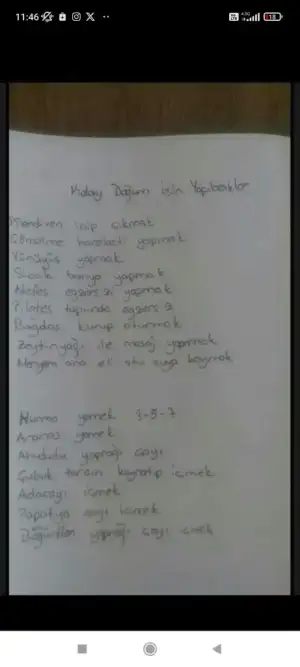 11:46
18
Kolay Doğum için Yapılacaklar
Merdiven inip çıkmak
Çömelme hareketi yapmak
Yürüyüş yapmak
Sıcak banyo yapmak
Nefes egzersizi yapmak
Pilates topunda egzersiz
Bağdaş kurup oturmak
Zeytinyağı ile masaj yapmak
Meryem ana eli otu suya koymak
Hurma yemek 3-5-7
Ananas yemek
Ahududu yaprağı çayı
Çubuk tarçın kaynatıp içmek
Adaçayı içmek
Papatya çayı içmek
Böğürtlen yaprağı çayı içmek